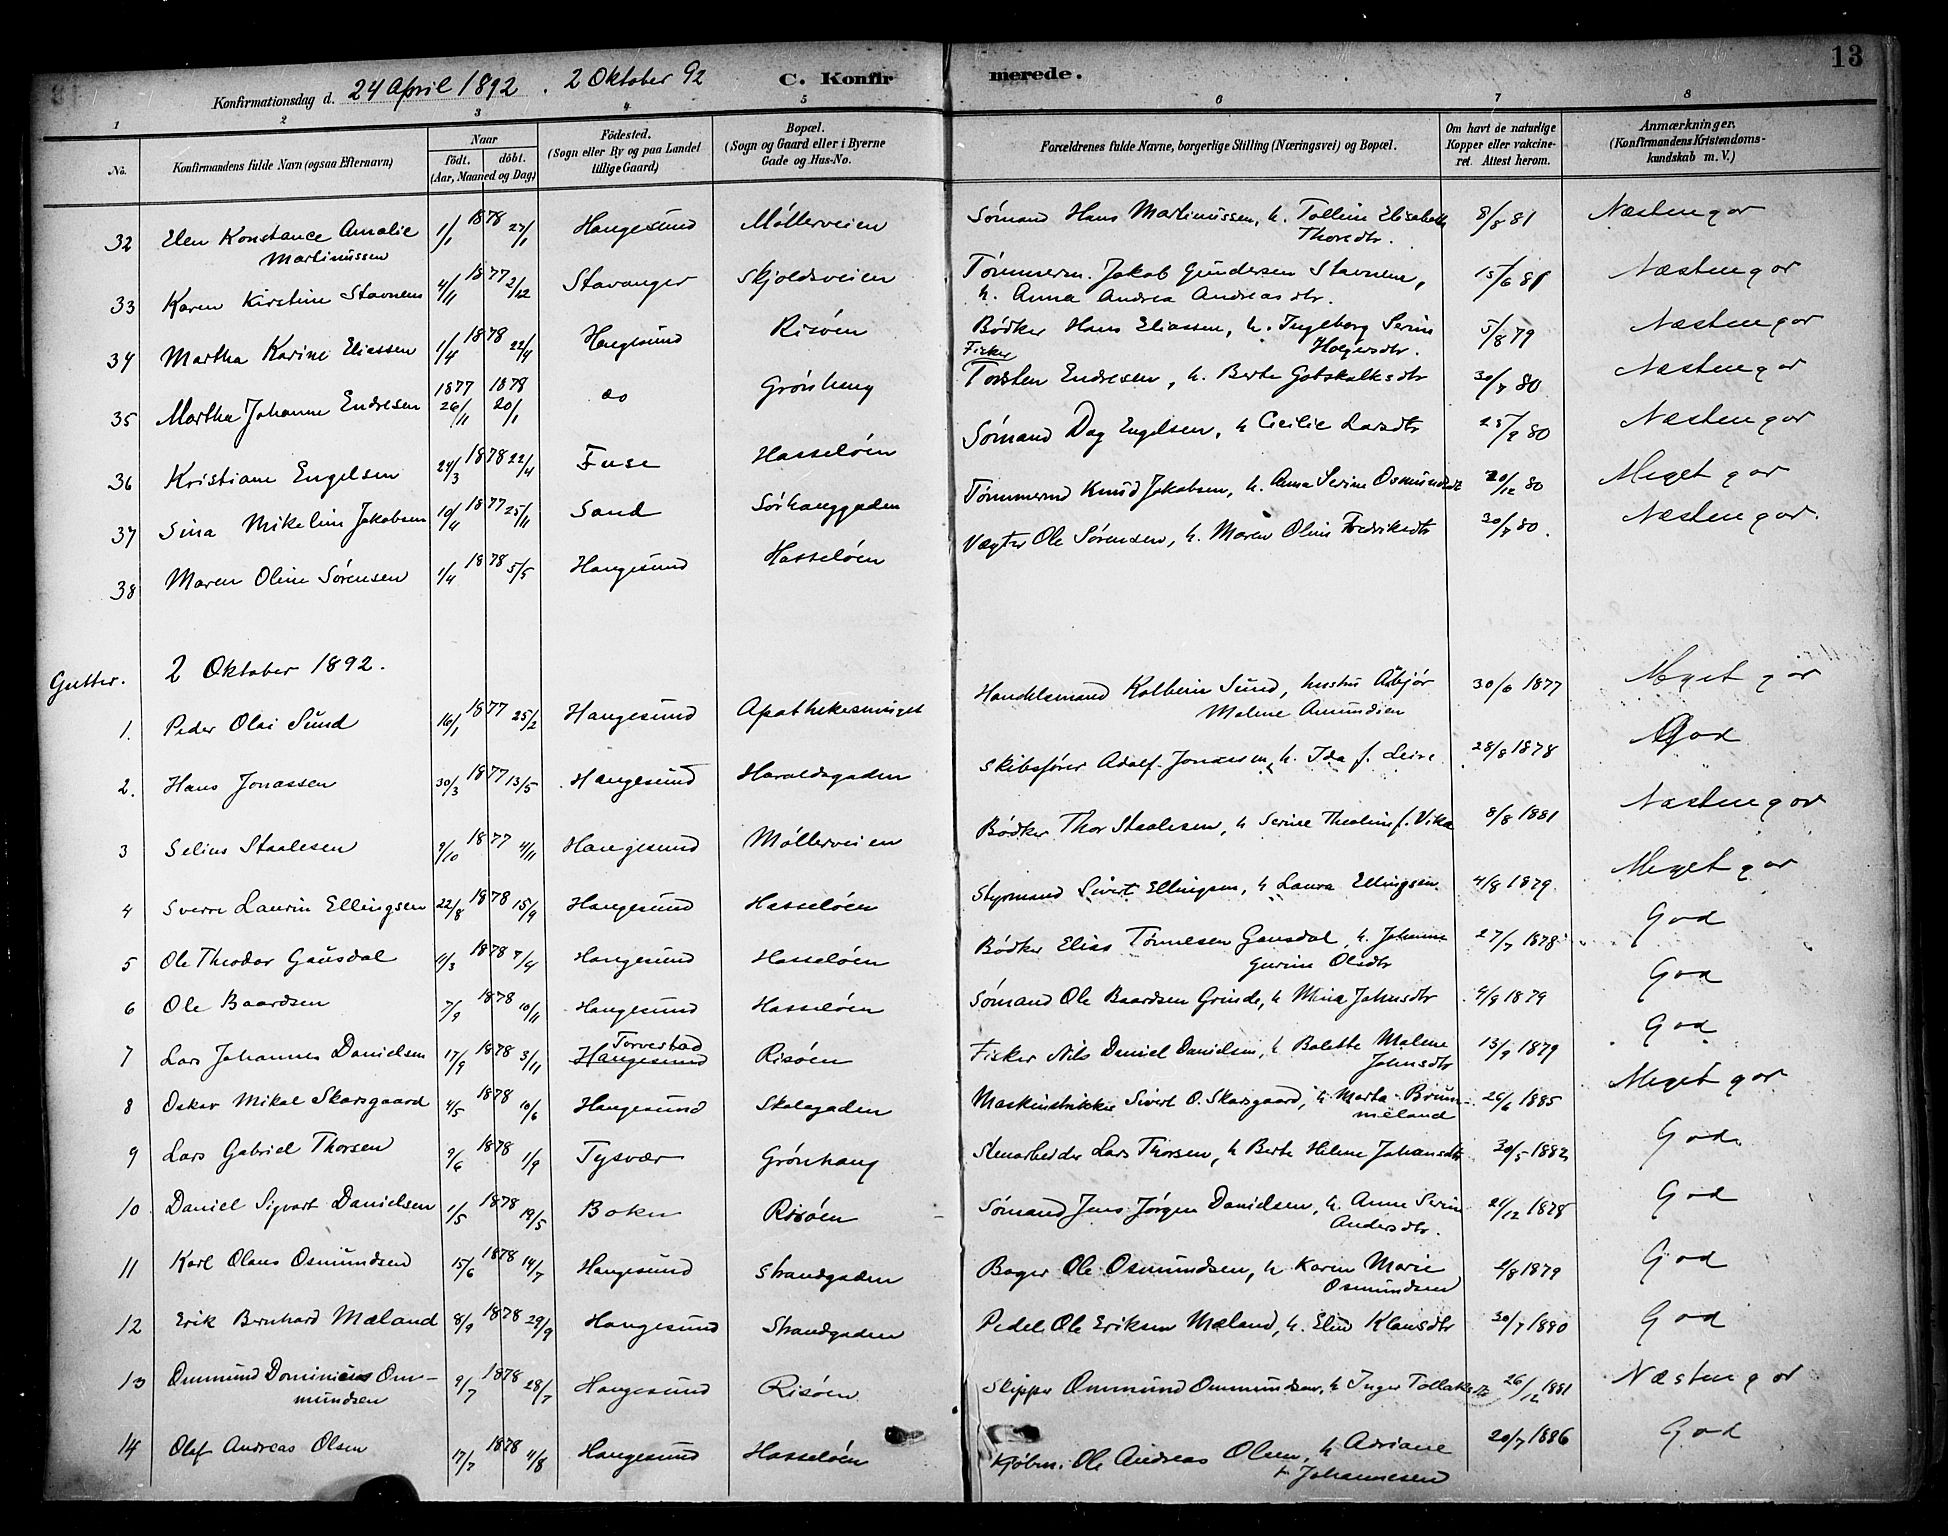 13
Konfirmationsdag d. 24 April 1892. 2 Oktober 92 C. Konfirmerede.
1 2 3 4 5 6 7 8
No. Konfirmandens fulde Navn (ogsaa Efternavn) Naar födt. döbt. (Aar, Maaned og Dag) Födested. (Sogn eller By og paa Landet tillige Gaard) Bopæl. (Sogn og Gaard eller i Byerne Gade og Hus-No. Forældrenes fulde Navne, borgerlige Stilling (Næringsvei) og Bopæl. Om havt de naturlige Kopper eller vakcineret. Attest herom. Anmærkninger. (Konfirmandens Kristendomskundskab m. V.)
32 Elen Konstance Amalie Martinussen 1/1 1878 27/1 Haugesund Möllerveien Sömand Hans Martinussen, h. Tolline Elisabeth Thoresdtr. 8/8 81 Næsten g or
33 Karen Kirstine Stavnem 4/11 1877 2/12 Stavanger Skjoldsveien Tömmerm. Jakob Gundersen Stavnem, h. Anna Andrea Andreasdtr. 15/6 81 Næsten g or
34 Martha Karine Eliassen 1/4 1878 22/4 Haugesund Risöen Bödker Hans Eliassen, h. Ingeborg Serine Holgersdtr. 5/8 79 Næsten g or
35 Martha Johanne Endresen 1877 26/11 1878 20/1 do Grönhaug Fisker Torsten Endresen, h. Berte Gotskalksdtr 30/7 80 Næsten g or
36 Kristiane Engelsen 24/3 1878 22/4 Fuse Hasselöen Sömand Dag Engelsen, h Cicilie Larsdtr 25/9 80 Næsten g or
37 Sina Mikeline Jakobsen 19/4 1877 25/11 Sand Sörhauggaden Tömmermd Knud Jakobsen, h. Anna Serine Osmundsdtr 20/12 80 Meget g or
38 Maren Oline Sörensen 1/4 1878 5/5 Haugesund Hasselöen Vægter Ole Sörensen, h. Maren Oline Fredriksdtr 30/7 80. Næsten g or.
Gutter. 2 Oktober 1892.
1. Peder Olai Sund 16/1 1877 25/2 Haugesund Apothekersmuget Handelsmand Kolbein Sund, hustru Asbjør Malene Amundsen 30/6 1877 Meget g or
2. Hans Jonassen 30/3 1877 13/5 Haugesund Haraldsgaden Skibsförer Adolf Jonassen, h. Ida f. Leire 28/8 1878 God
3 Selius Staalesen 9/10 1877 4/11 Haugesund Möllerveien Bödker Thor Staalesen, h Serine Theoline f. Vika 8/8 1881 Næsten g or
4 Sverre Laurin Ellingsen 22/8 1878 15/9 Haugesund Hasselöen Styrmand Sivert Ellingsen, h Laura Ellingsen. 4/8 1879. Meget g or
5 Ole Theodor Gausdal 4/3 1878 7/4 Haugesund Hasselöen Bödker Elias Tönnesen Gausdal, h. Johanne Gurine Olsdtr 27/7 1878 God
6 Ole Baardsen 7/9 1878 10/11 Haugesund Hasselöen Sömand Ole Baardsen Grinde, h Mina Johnsdtr 9/9 1879 God
7 Lars Johannes Danielsen 17/9 1878 3/11 Torvestad Haugesund Risöen Fisker Nils Daniel Danielsen, h Bolette Malene Johnsdtr 13/9 1879 God
8 Oskar Mikal Skarsgaard 4/5 1878 10/6 Haugesund Skolegaden Maskinstrikker Sivert O. Skarsgaard, h Marta Brummeland 26/6 1885 Meget g or
9 Lars Gabriel Thorsen 9/6 1878 1/9 Tysvær Grönhaug Stenarbeider Lars Thorsen, h Berte Helene Johansdtr 30/5 1882 God
10 Daniel Sigvart Danielsen 1/5 1878 19/5 Bokn Risöen Sömand Jens Jörgen Danielsen, h. Anne Serine Andersdtr. 21/12 1878 God
11 Karl Olaus Osmundsen 15/6 1878 14/7 Haugesund Strandgaden Bager Ole Osmundsen, h Karen Marie Osmundsen 2/8 1879 God
12 Erik Bernhard Mæland 8/9 1878 29/9 Haugesund Strandgaden Pedel Ole Eriksen Mæland, h. Elen Klausdtr 30/7 1890 God
13 Ommund Dominicus Ommundsen 9/7 1878 28/7 Haugesund Risöen Skipper Ommund Ommundsen, h Inger Tollaksdtr 26/12 1881 Næsten g or
14 Olaf Andreas Olsen 17/7 1878 11/8 Haugesund Hasselöen Kjöbm. Ole Andreas Olsen, h Adriane f. Johannesen 20/7 1886 God